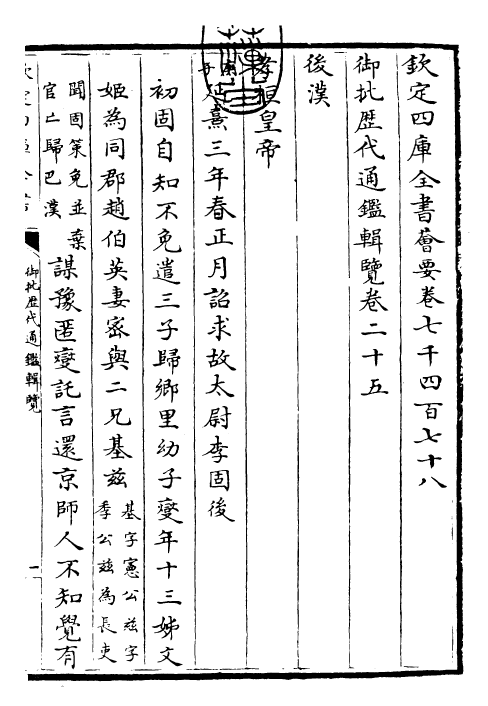 欽定四庫全書薈要卷七千四百七十八
御批歴代通鑑輯覽卷二十五
後漢
孝桓皇帝
庚子延熹三年春正月詔求故太尉李固後
初固自知不免遣三子歸鄉里幼子燮年十三姊文
姬為同郡趙伯英妻密與二兄基兹
基字憲公兹字
季公兹為長吏
聞固策免並棄
官亡歸巴漢
謀豫匿燮託言還京師人不知覺有
御批歴代通鑑輯覽
一